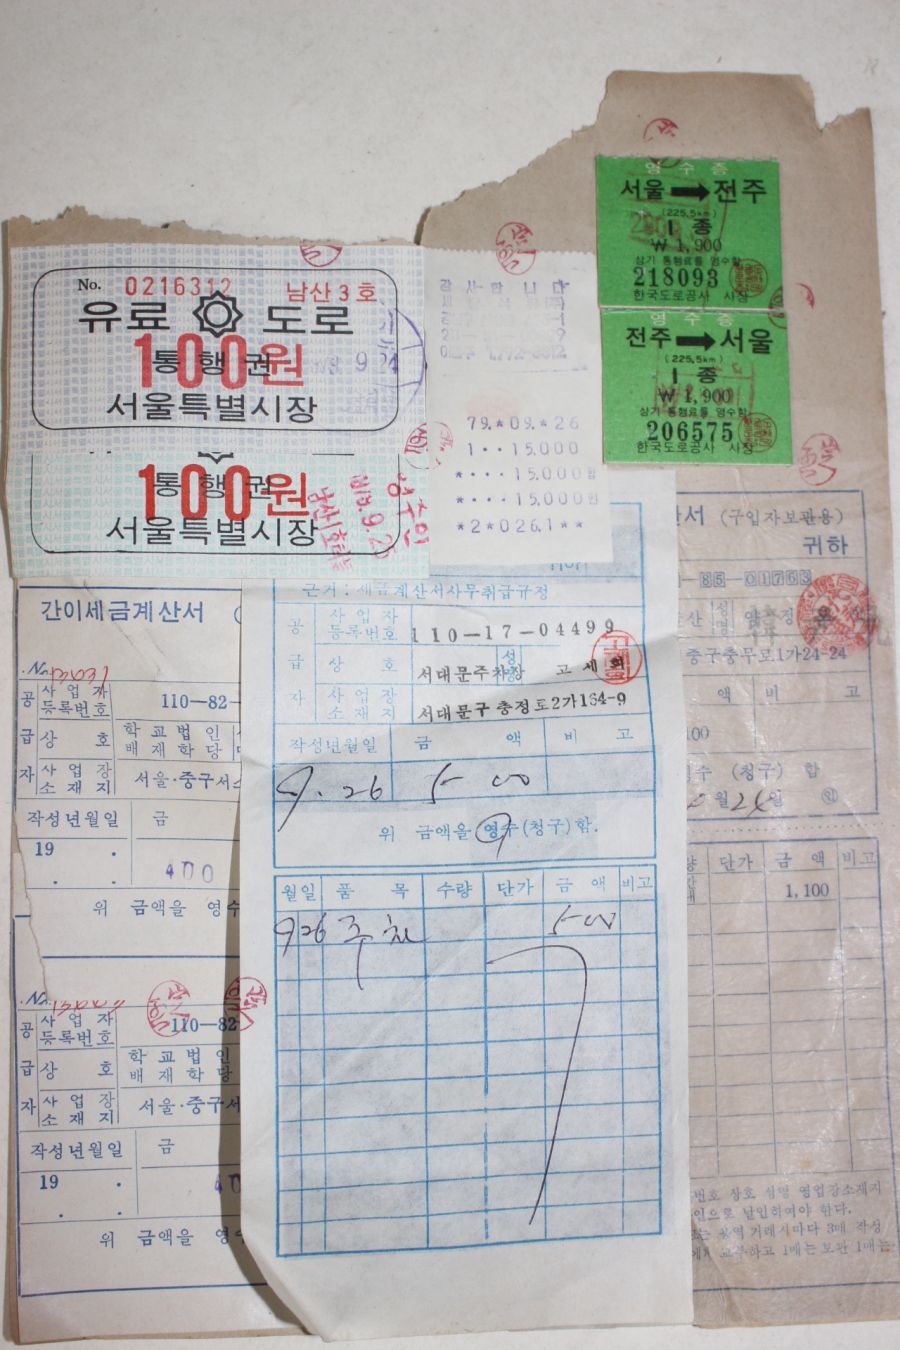 No. 0216312 남산3호
유료 도로
통행권
100원
9.24
서울특별시장
통행권
100원
서울특별시장
1979.9.25
감사합니다
79.*09.*26
1··15.000
*···15.000
*···15.000
*2*026.1**
영수증
서울 → 전주
(225.5km)
I 종
₩1,900
상기 통행료를 영수함
218093
한국도로공사 사장
영수증
전주 → 서울
(225.5km)
I 종
₩1,900
상기 통행료를 영수함
206575
한국도로공사 사장
간이세금계산서
공급자
사업자등록번호 110-82-
상호 학교법인 배재학당
사업장소재지 서울·중구서
작성년월일 금
19 . . .
400
위 금액을 영수
공급자
사업자등록번호 110-82
상호 학교법인 배재학당
사업장소재지 서울·중구서
작성년월일 금
19 . . .
위 금액을 영수
귀하
근거:세금계산서사무취급규정
공급자
사업자등록번호 110-17-04499
상호 서대문주차장 성명 고세희
사업장소재지 서대문구 충정로2가164-9
작성년월일 금액 비고
9.26 500
위 금액을 영수(청구)함.
월일 품목 수량 단가 금액 비고
9 26 주차 500
산서 (구입자보관용)
귀하
-85-01763
성명
중구충무로1가24-24
액 비고
00
수 (청구) 함
월 24일 ㊞
량 단가 금액 비고
1,100
번호 상호 성명 영업장소재지
인으로 날인하여야 한다.
는 용역 거래시마다 3매 작성
에게 교부하고 1매는 보관 1매는